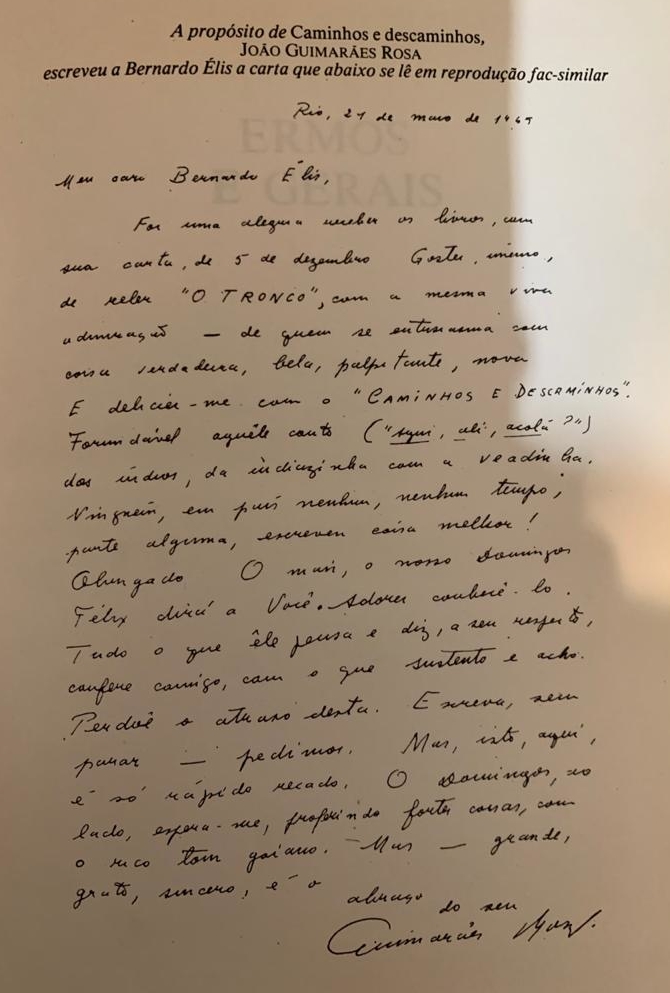 A propósito de Caminhos e descaminhos,
JOÃO GUIMARÃES ROSA
escreveu a Bernardo Élis a carta que abaixo se lê em reprodução fac-similar
ERMOS
E GERAIS
Rio, 21 de maio de
Meu caro Bernardo Élis,
Foi uma alegria receber os livros, com
sua carta, de 5 de dezembro Gostei, imenso,
de reler "O TRONCO", com a mesma viva
admiração — de quem se entusiasma com
coisa verdadeira, bela, palpitante, nova
E deliciei-me com o "CAMINHOS E DESCAMINHOS".
Formidável aquêle conto ("Aqui, ali, acolá?")
dos índios, da indiazinha com a veadinha.
Ninguém, em país nenhum, nenhum tempo,
parte alguma, escreveu coisa melhor!
Obrigado O mais, o nosso Domingos
Félix dirá a Você. Adorei conhecê-lo.
Tudo o que êle pensa e diz, a seu respeito,
confere comigo, com o que sustento e acho.
Perdoe o atraso desta. Escreva, sem
parar — pedimos. Mas, isto, aqui,
é só rápido recado. O Domingos, ao
lado, espera-me, proferindo fortes coisas, com
o rico tom goiano. Mas — grande,
grato, sincero, é o abraço
do seu
Guimarães Rosa.